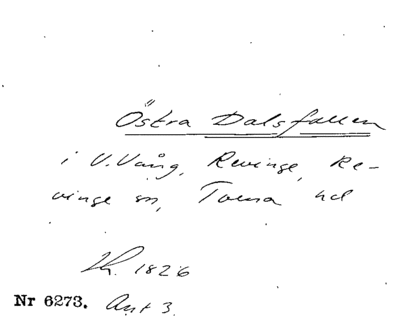 Östra Dalsfallen
i V. Vång, Revinge, Re-
vinge sn, Torna hd
Lh. 1826
Nr 6273. Akt 3.